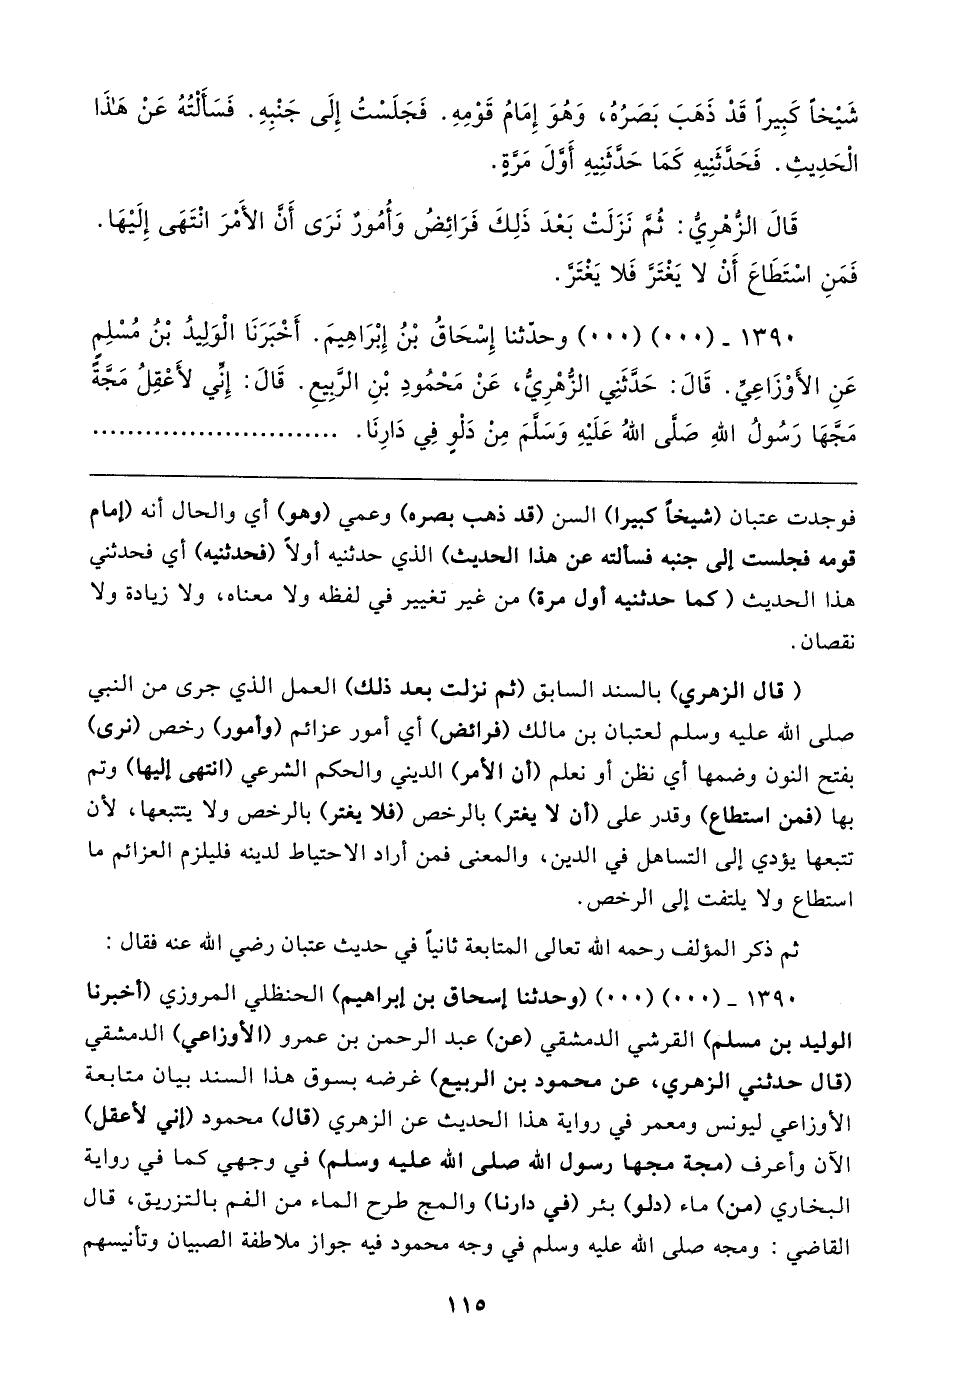 شَيْخاً كَبِيراً قَدْ ذَهَبَ بَصَرُهُ، وَهُوَ إِمَامُ قَوْمِهِ. فَجَلَسْتُ إِلَى جَنْبِهِ. فَسَأَلْتُهُ عَنْ هَذَا
الْحَدِيثِ. فَحَدَّثَنِيهِ كَمَا حَدَّثَنِيهِ أَوَّلَ مَرَّةٍ.
قَالَ الزُّهْرِيُّ: ثُمَّ نَزَلَتْ بَعْدَ ذَلِكَ فَرَائِضُ وَأُمُورٌ نَرَى أَنَّ الأَمْرَ انْتَهَى إِلَيْهَا.
فَمَنِ اسْتَطَاعَ أَنْ لا يَغْتَرَّ فَلا يَغْتَرَّ.
١٣٩٠ ـ (٠٠٠) (٠٠٠) وحدّثنا إِسْحَاقُ بْنُ إِبْرَاهِيمَ. أَخْبَرَنَا الْوَلِيدُ بْنُ مُسْلِمٍ
عَنِ الأَوْزَاعِيِّ. قَالَ: حَدَّثَنِي الزُّهْرِيُّ، عَنْ مَحْمُودِ بْنِ الرَّبِيعِ. قَالَ: إِنِّي لأَعْقِلُ مَجَّةً
مَجَّهَا رَسُولُ اللهِ صَلَّى اللهُ عَلَيْهِ وَسَلَّمَ مِنْ دَلْوٍ فِي دَارِنَا. ............................
فوجدت عتبان (شيخاً كبيرا) السن (قد ذهب بصره) وعمي (وهو) أي والحال أنه (إمام
قومه فجلست إلى جنبه فسألته عن هذا الحديث) الذي حدثنيه أولاً (فحدثنيه) أي فحدثني
هذا الحديث (كما حدثنيه أول مرة) من غير تغيير في لفظه ولا معناه، ولا زيادة ولا
نقصان.
(قال الزهري) بالسند السابق (ثم نزلت بعد ذلك) العمل الذي جرى من النبي
صلى الله عليه وسلم لعتبان بن مالك (فرائض) أي أمور عزائم (وأمور) رخص (نرى)
بفتح النون وضمها أي نظن أو نعلم (أن الأمر) الديني والحكم الشرعي (انتهى إليها) وتم
بها (فمن استطاع) وقدر على (أن لا يغتر) بالرخص (فلا يغتر) بالرخص ولا يتتبعها، لأن
تتبعها يؤدي إلى التساهل في الدين، والمعنى فمن أراد الاحتياط لدينه فليلزم العزائم ما
استطاع ولا يلتفت إلى الرخص.
ثم ذكر المؤلف رحمه الله تعالى المتابعة ثانياً في حديث عتبان رضي الله عنه فقال:
١٣٩٠ ـ (٠٠٠) (٠٠٠) (وحدثنا إسحاق بن إبراهيم) الحنظلي المروزي (أخبرنا
الوليد بن مسلم) القرشي الدمشقي (عن) عبد الرحمن بن عمرو (الأوزاعي) الدمشقي
(قال حدثني الزهري، عن محمود بن الربيع) غرضه بسوق هذا السند بيان متابعة
الأوزاعي ليونس ومعمر في رواية هذا الحديث عن الزهري (قال) محمود (إني لأعقل)
الآن وأعرف (مجة مجها رسول الله صلى الله عليه وسلم) في وجهي كما في رواية
البخاري (من) ماء (دلو) بئر (في دارنا) والمج طرح الماء من الفم بالتزريق، قال
القاضي: ومجه صلى الله عليه وسلم في وجه محمود فيه جواز ملاطفة الصبيان وتأنيسهم
١١٥